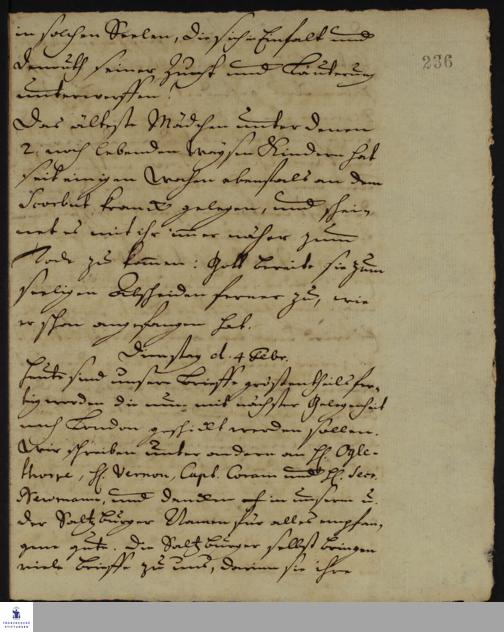 in solchen Seelen, die sich in Einfalt und
Demuth seiner Zucht und Läuterung
unterwerffen!
Das älteste Mädchen unter denen
2 noch lebenden Waysen Kindern hat
seit einigen Wochen ebenfals an dem
Scorbut kranck gelegen, und schei-
net es mit ihr immer näher zum
Tode zu kommen: Gott bereite sie zum
seeligen Abscheiden ferner zu, wie
er schon angefangen hat.
Dienstag d. 4 Febr.
Heute sind unsere Brieffe grösten theils fer-
tig worden die nun mit nächster Gelegenheit
nach London geschickt werden sollen.
Wir schreiben unter andern an H. Ogle-
thorpe, H. Vernon, Capt. Coram und H. Secr.
Newmann, und dancken in unsern u.
der Saltzburger Namen für alles empfan-
gene gute. Die Saltzburger selbst bringen
viele Brieffe zu uns, darinn sie ihre
236
FRANCKESCHE
STIFTUNGEN